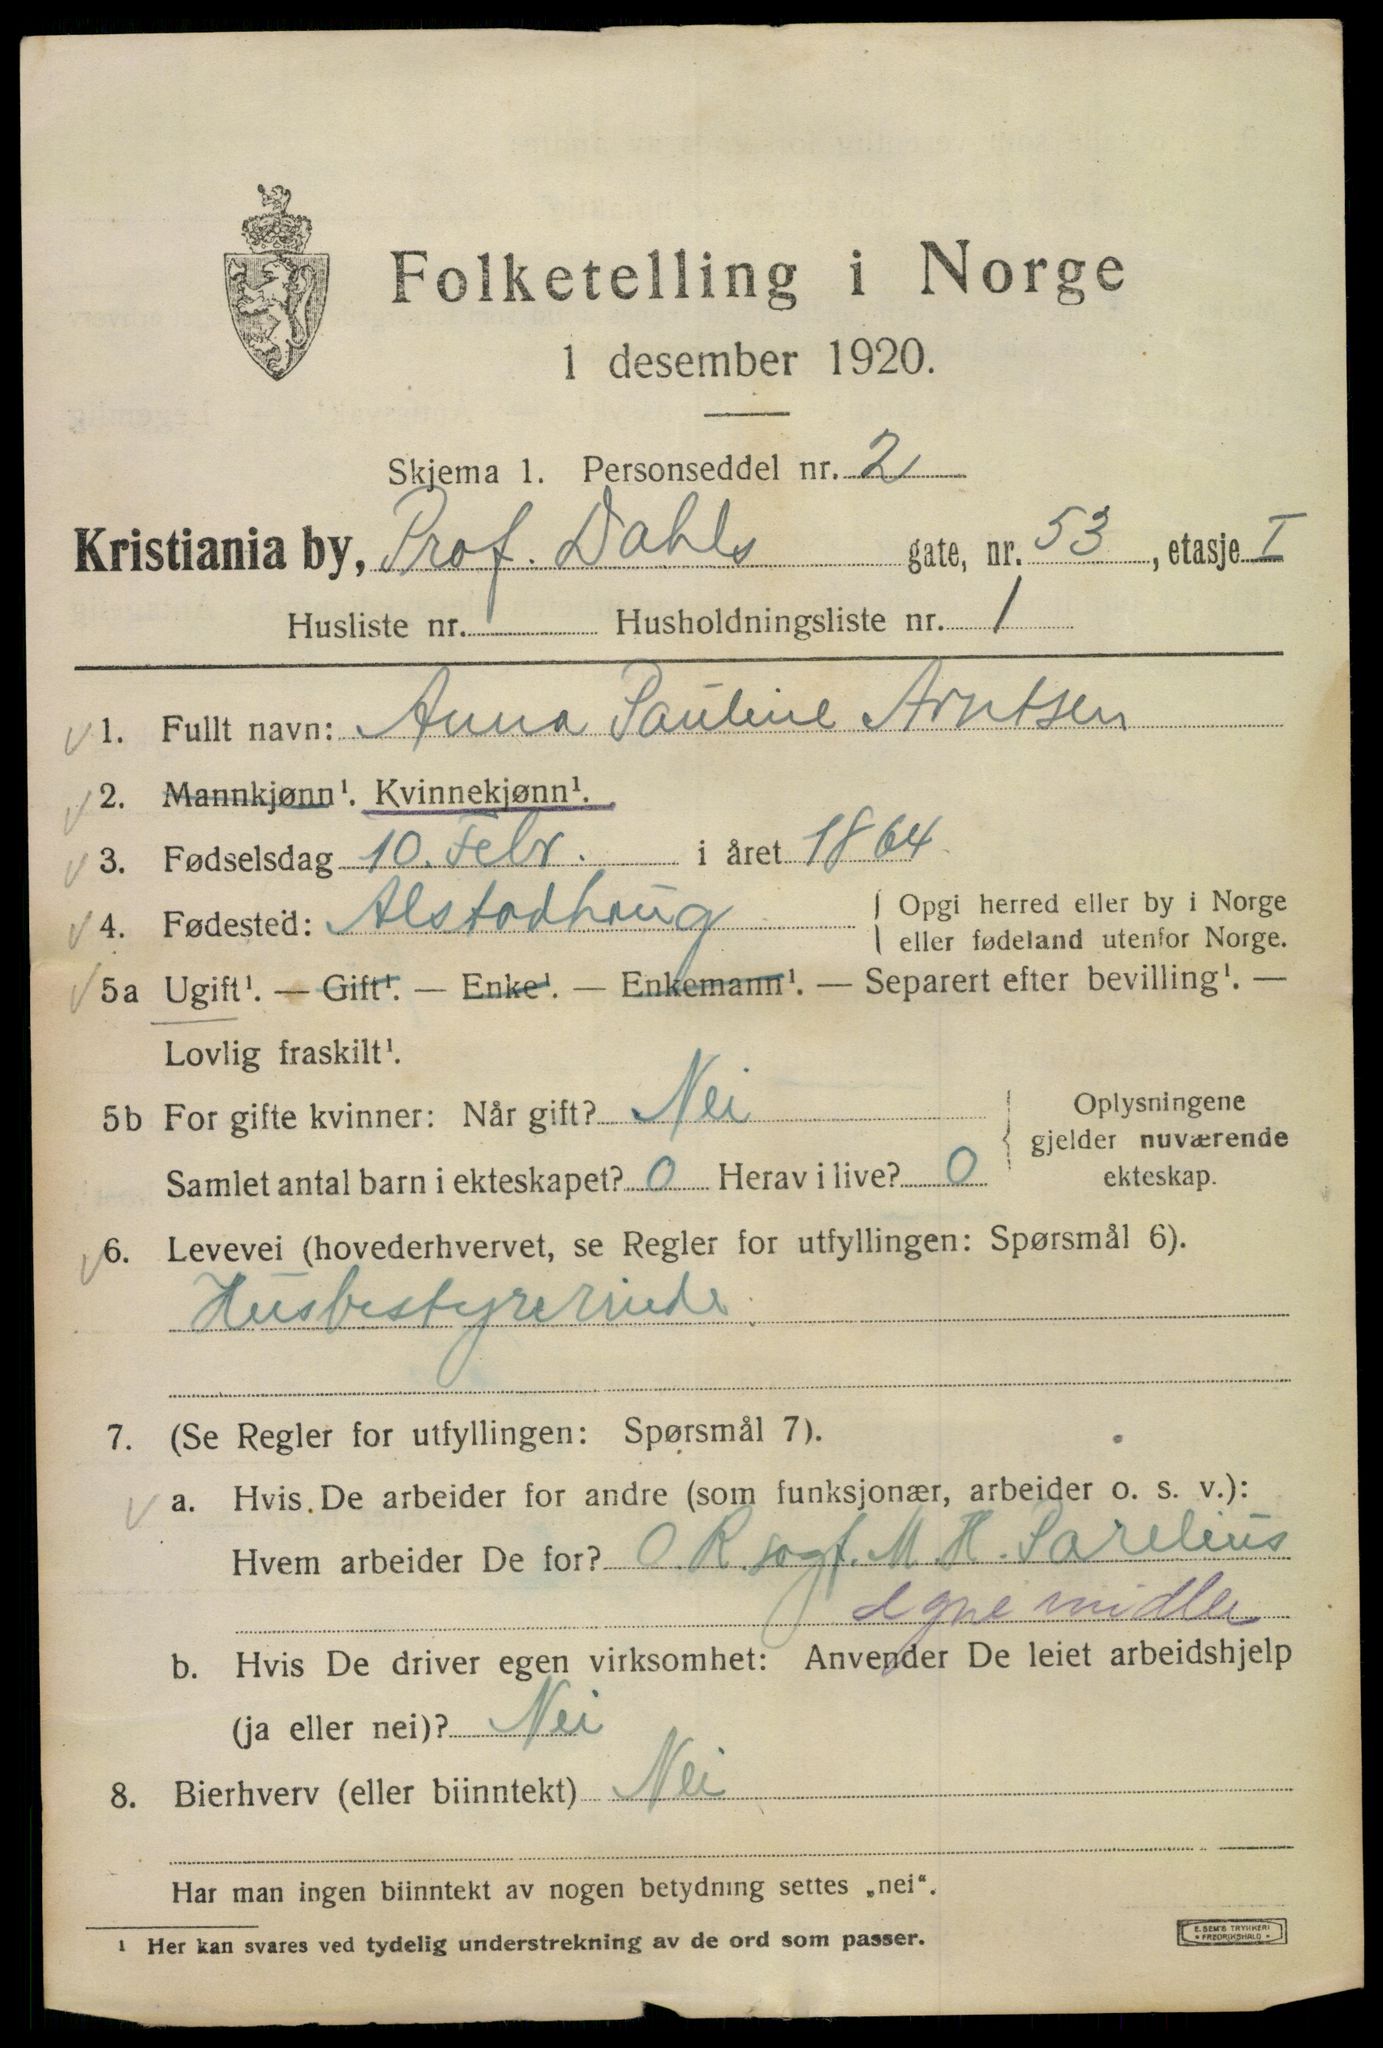 Folketelling i Norge
1 desember 1920.
Skjema 1. Personseddel nr. 2
Kristiania by, Prof. Dahls gate, nr. 53, etasje I
Husliste nr. Husholdningsliste nr. 1
1. Fullt navn: Anna Pauline Arntsen
2. Mannkjønn¹. Kvinnekjønn¹.
3. Fødselsdag 10. Febr. i året 1864
4. Fødested: Alstadhoug { Opgi herred eller by i Norge
eller fødeland utenfor Norge.
5a Ugift¹. — Gift¹. — Enke¹. — Enkemann¹. — Separert efter bevilling¹. —
Lovlig fraskilt¹.
5b For gifte kvinner: Når gift? Nei
Samlet antal barn i ekteskapet? 0 Herav i live? 0
Oplysningene
gjelder nuværende
ekteskap.
6. Levevei (hovederhvervet, se Regler for utfyllingen: Spørsmål 6).
Husbestyrerinde
7. (Se Regler for utfyllingen: Spørsmål 7).
a. Hvis De arbeider for andre (som funksjonær, arbeider o. s. v.):
Hvem arbeider De for? O.R.sagf. M. H. Parelius
Egne midler
b. Hvis De driver egen virksomhet: Anvender De leiet arbeidshjelp
(ja eller nei)? Nei
8. Bierhverv (eller biinntekt) Nei
Har man ingen biinntekt av nogen betydning settes „nei“.
¹ Her kan svares ved tydelig understrekning av de ord som passer.
E. SEM'S TRYKKERI
FREDRIKSHALD